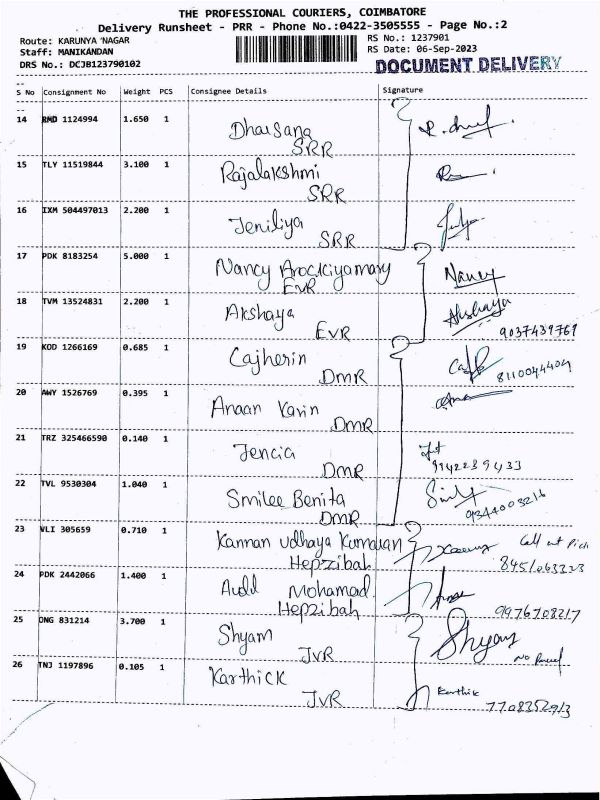 THE PROFESSIONAL COURIERS, COIMBATORE
Delivery Runsheet - PRR - Phone No.:0422-3505555 - Page No.:2
Route: KARUNYA NAGAR RS No.: 1237901
Staff: MANIKANDAN RS Date: 06-Sep-2023
DRS No.: DCJB123790102 DOCUMENT DELIVERY
S No Consignment No Weight PCS Consignee Details Signature
14 RMD 1124994 1.650 1 Dharsana
SRR
15 TLY 11519844 3.100 1 Rajalakshmi
SRR
16 IXM 504497013 2.200 1 Jeniliya
SRR
17 PDK 8183254 5.000 1 Nancy Arockiyamary Nancy
EVR
18 TVM 13524831 2.200 1 Akshaya Akshaya
EVR 9037439761
19 KOD 1266169 0.685 1 Cajherin
DMR 8110044404
20 AWY 1526769 0.395 1 Anaan Kavin
DMR
21 TRZ 325466590 0.140 1 Jencia
DMR 9942239433
22 TVL 9530304 1.040 1 Smilee Benita
DMR 9344003216
23 VLI 305659 0.710 1 Kannan udhaya Kumaran Call at
Hepzibah
24 PDK 2442066 1.400 1 Mohamad
Hepzibah 9976708217
25 ONG 831214 3.700 1 Shyam Shyam
JVR
26 TNJ 1197896 0.105 1 Karthick Karthik
JVR 7708352913